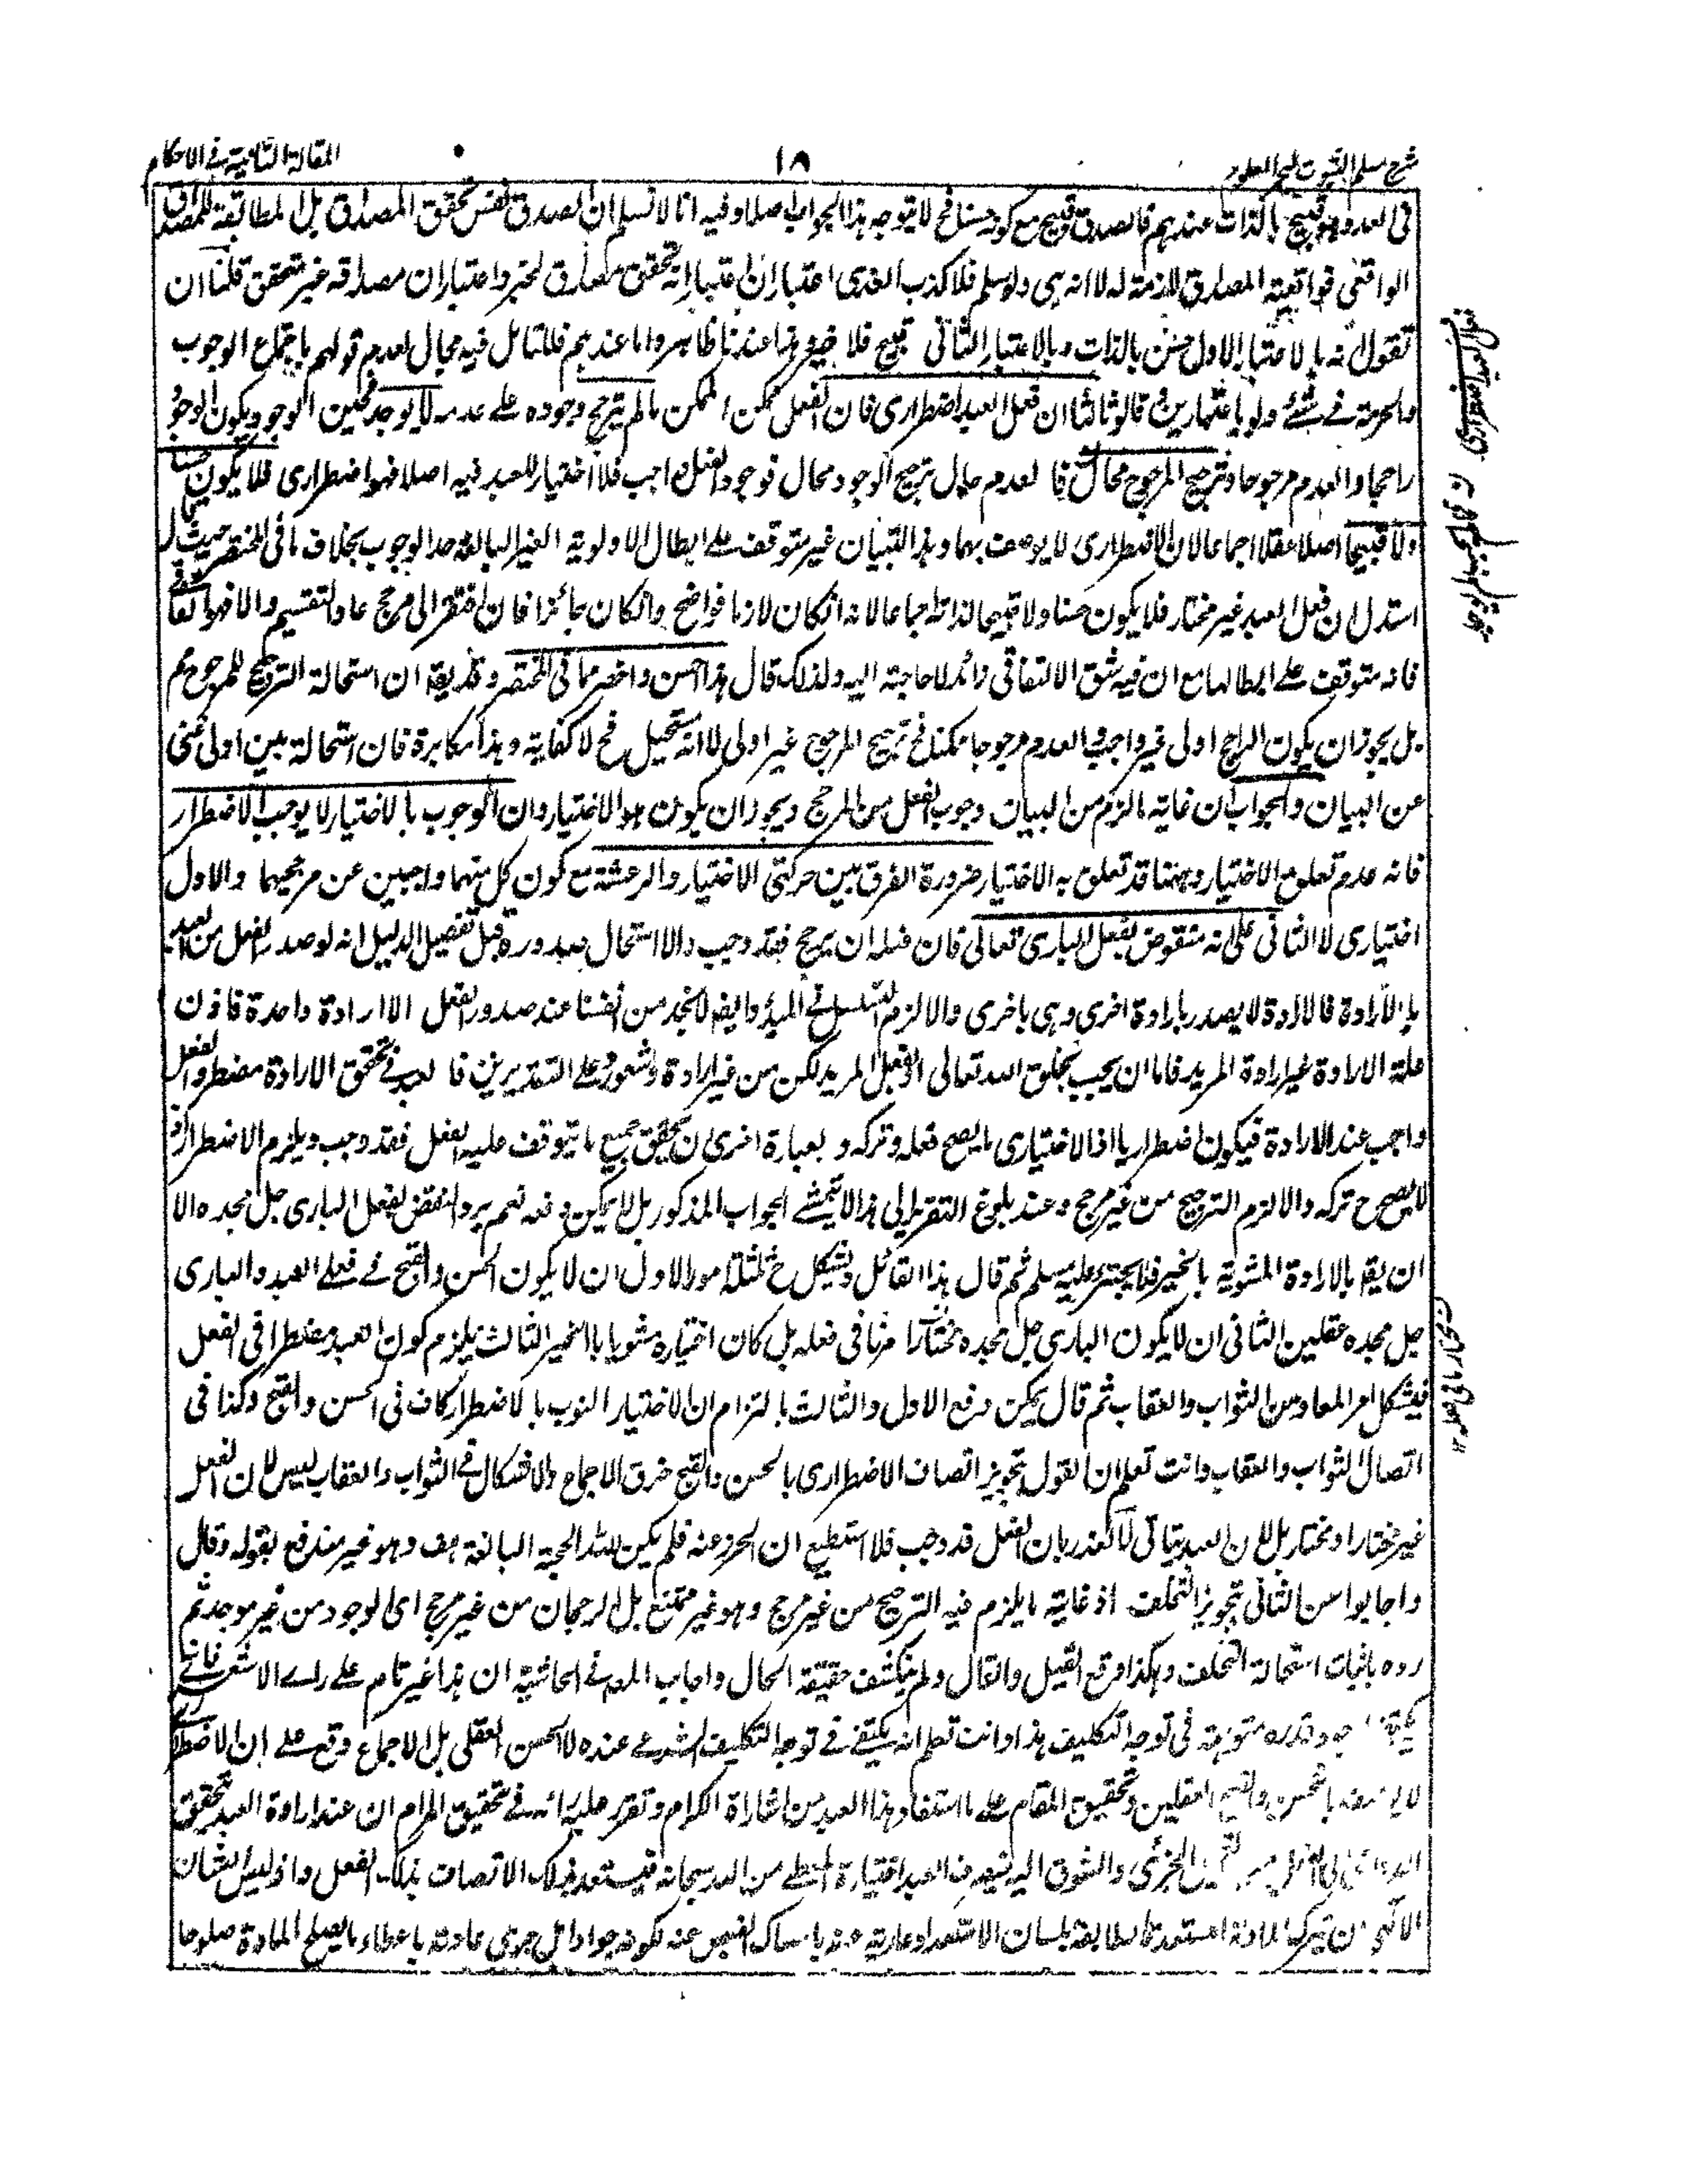 شرح مسلم الثبوت لبحر العلوم
١٨
المقالة الثانية في الاحكام
في العدد وهو قبيح بالذات عندهم فالصدق قبيح مع كونه حسنا فح لا يتوجه هذا الجواب اصلا وفيه انا لا نسلم ان الصدق نفس تحقق المصداق بل المطابقة للمصداق
الواقعي فواقعية المصداق لازمة له لا انه هي ولو سلم فلا كذب الغدى اعتباران اعتبار انه تحقق مصداق لخبر واعتبار ان مصداقه غير متحقق فلنا ان
نقول انه بالاعتبار الاول حسن بالذات وبالاعتبار الثاني قبيح فلا ضير وهذا عندنا ظاهر واما عندهم فللتامل فيه مجال لعدم قولهم باجتماع الوجوب
والحرمة في شئ ولو باعتبارين قالوا ثالثا ان فعل العبد اضطراري فان الفعل ممكن الممكن ما لم يترجح وجوده على عدمه لا يوجد فحين الوجود يكون الوجود
راجحا والعدم مرجوحا وترجيح المرجوح محال فا لعدم حال ترجيح الوجود محال فوجود الفعل واجب فلا اختيار للعبد فيه اصلا فهو اضطراري فلا يكون حسنا
ولا قبيحا اصلا عقلا اجماعا لان الاضطراري لا يوصف بهما وهذا التبيان غير متوقف على ابطال الاولوية الغير البالغة حد الوجوب بخلاف ما في المختصر حيث
استدل ان فعل العبد غير مختار فلا يكون حسنا ولا قبيحا لذاته اجماعا لانه ان كان لازما فواضح وان كان جائزا فان افتقر الى مرجح عاد التقسيم والا فهو اتفاقي
فانه متوقف على ابطالها مع ان فيه شق الاتفاقي زائد لا حاجة اليه ولذلك قال هذا حسن واخصر مما في المختصر وقد يقع ان استحالة الترجيح للمرجوح مم
بل يجوز ان يكون الراجح اولى غير واجب والعدم مرجوحا ممكنا فح ترجيح المرجوح غير اولى لا انه مستحيل فح لا كفاية وهذا مكابرة فان استحالة بين اولى غني
عن البيان والجواب ان غاية ما لزم من البيان وجوب الفعل من المرجح ويجوز ان يكون هو الاختيار وان الوجوب بالاختيار لا يوجب الاضطرار
فانه عدم تعلق الاختيار وههنا قد تعلق به الاختيار ضرورة الفرق بين حركتي الاختيار والرعشة مع كون كل منهما واجبين عن مرجحيهما والاول
اختياري لا الثاني على انه منقوض بفعل الباري تعالى فان فعله ان يرجح فقد وجب والا استحال صدوره قبل تفصيل الدليل انه لو صدر الفعل من العبد
بالارادة فالارادة لا يصدر بارادة اخرى وهي باخرى والا لزم التسلسل في المبدء وايضا لا نجد من انفسنا عند صدور الفعل الا ارادة واحدة فاذن
علة الارادة غير ارادة المريد فاما ان يجب بخلق الله تعالى او فعل المريد لكن من غير ارادة وشعور وعلى التقديرين فا لعبد في تحقق الارادة مضطر والفعل
واجب عند الارادة فيكون اضطراريا اذ الاختياري ما يصح فعله وتركه وبعبارة اخرى ان تحقق جميع ما يتوقف عليه الفعل فقد وجب ويلزم الاضطرار اذ
لا يصح ح تركه والا لزم الترجيح من غير مرجح وعند بلوغ التقرير الى هذا لا يتمشى الجواب المذكور بل لا يمكن دفعه نعم يرد النقض بفعل الباري جل مجده الا
ان يقع بالارادة المشوبة بالخير فلا يجترء عليه مسلم ثم قال هذا القائل ويشكل ح ثلثة امور الاول ان لا يكون الحسن والقبح في فعلي العبد والباري
جل مجده عقليين الثاني ان لا يكون الباري جل مجده مختارا صرفا في فعله بل كان اختياره مشوبا بالخير الثالث يلزم كون العبد مضطرا في الفعل
فيشكل امر المعاد من الثواب والعقاب ثم قال يمكن دفع الاول والثالث بالتزام ان الاختيار المشوب بالاضطرار كاف في الحسن والقبح وكذا في
اتصال الثواب والعقاب وانت تعلم ان القول بتجويز اتصاف الاضطراري بالحسن والقبح خرق الاجماع والاشكال في الثواب والعقاب ليس لان الفعل
غير مختار او مختار بل لان العبد يتاتى له العذر بان الفعل قد وجب فلا استطيع ان احرز عنه فلم يكن لله الحجة البالغة هف وهو غير مندفع بقوله وقال
واجابوا عن الثاني بتجويز التخلف اذ غاية ما يلزم فيه الترجيح من غير مرجح وهو غير ممتنع بل الرجحان من غير مرجح اي الوجود من غير موجد ثم
رده باثبات استحالة التخلف وهكذا وقع القيل والقال ولم ينكشف حقيقة الحال واجاب المص في الحاشية ان هذا غير تام على راى الاشعري فانه
وقدرة متوهمة في توجه التكليف هذا وانت تعلم انه يكتفي في توجه التكليف الشرعي عنده لا الحسن العقلي بل الاجماع وقع على ان الاضطراري
لا يتصف بالحسن والقبح العقليين وتحقيق المقام على ما استفاد هذا العبد من اشارات الكرام وتقرر عليه رائه في تحقيق المرام ان عند ارادة العبد تحقق
الدواعي الى الفعل من الجزئي والشوق اليه يصرف العبد اختياره المعطى من الله سبحانه فيستعد بذلك الاتصاف بذلك الفعل واذ ليس لشان
ان يترك المادة المستعدة الطالبة بلسان الاستعداد عارية عنه بامساك الفيض عنه لكونه جوادا بل جرى عادته باعطاء ما يصلح المادة صلوحا